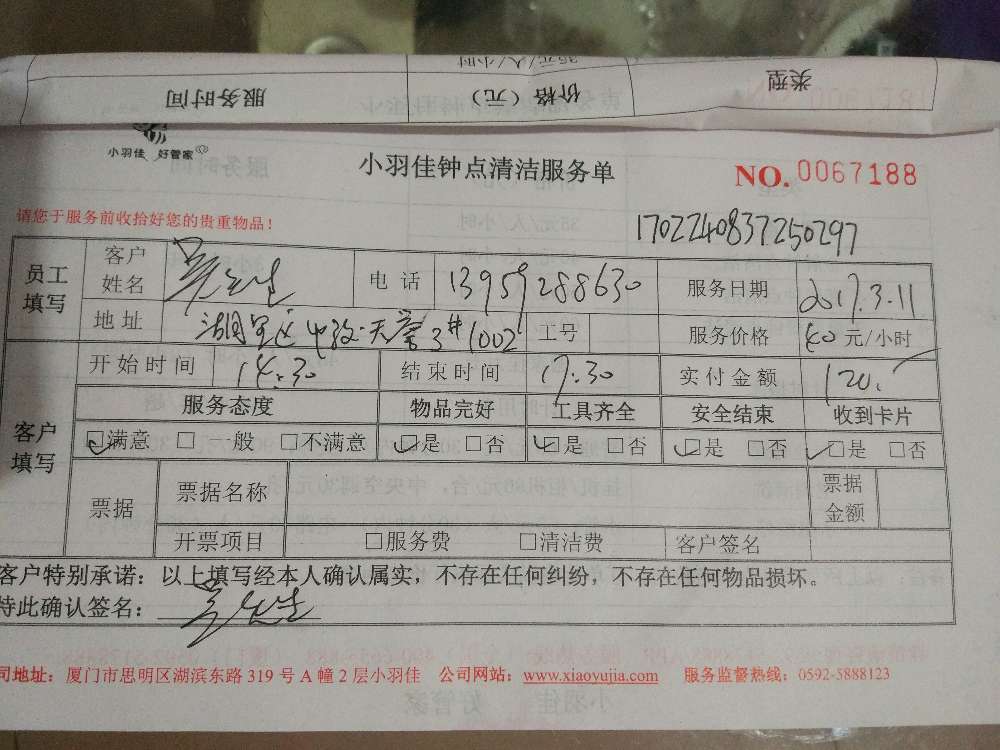 35元/人/小时
服务时间 价格（元） 类型
小羽佳 好管家
小羽佳钟点清洁服务单
NO. 0067188
请您于服务前收拾好您的贵重物品！
1702240837250297
员工填写 客户姓名 吴先生 电话 13959288630 服务日期 2017.3.11
地址 湖里区 天誉3#1002 工号 服务价格 40元/小时
客户填写 开始时间 14:30 结束时间 17:30 实付金额 120.
服务态度 物品完好 工具齐全 安全结束 收到卡片
☑满意 □一般 □不满意 ☑是 □否 ☑是 □否 ☑是 □否 ☑是 □否
票据 票据名称 票据金额
开票项目 □服务费 □清洁费 客户签名
客户特别承诺：以上填写经本人确认属实，不存在任何纠纷，不存在任何物品损坏。
特此确认签名：吴先生
司地址：厦门市思明区湖滨东路319号A幢2层小羽佳 公司网站：www.xiaoyujia.com 服务监督热线：0592-5888123